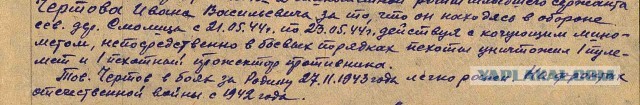 Чертова Ивана Васильевича за то, что он находясь в обороне
сев. дер. Смолица с 21.05.44г. по 23.05.44г. действуя с кочующим мино-
метом, непосредственно в боевых порядках пехоты уничтожил 1 пуле-
мет и 1 пехотный прожектор противника.
Тов. Чертов в боях за Родину 27.11.1943 года легко ранен. На фронтах
отечественной войны с 1942 года.